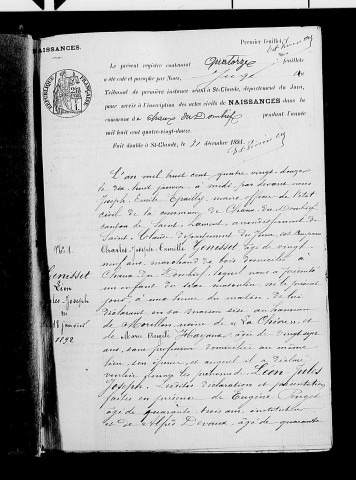 NAISSANCES.
Premier feuillet
Le présent registre contenant quatorze feuillets
a été coté et paraphé par Nous, Juge au
Tribunal de première instance séant à St-Claude, département du Jura,
pour servir à l'inscription des actes civils de NAISSANCES dans la
commune de Chaux du Dombief pendant l'année
mil huit cent quatre-vingt-douze.
Fait double à St-Claude, le 31 décembre 1891.
RÉPUBLIQUE FRANÇAISE
L'an mil huit cent quatre vingt douze
le dix huit janvier à midi, par devant nous
Joseph Emile maire officier de l'état
civil de la commune de Chaux du Dombief
canton de Saint Laurent, arrondissement de
Saint Claude, département du Jura, est comparu
Charles Joseph Camille Génisset âgé de vingt
neuf ans, marchand de bois domicilié à
Chaux du Dombief, lequel nous a présenté
un enfant du sexe masculin né le présent
jour à une heure du matin, de lui
déclarant, en sa maison sise au hameau
de Morillon, et de
Marie âgée de vingt sept
ans, sans profession domiciliée au même
lieu, son épouse, et auquel il a déclaré
vouloir donner les prénoms de Léon Jules
Joseph. Lesdites déclaration et présentation
faites en présence de Eugène
âgé de quarante trois ans, instituteur
et de Alfred Devaux, âgé de quarante
N° 1.
Génisset
Léon
Jules-Joseph
18 janvier
1892